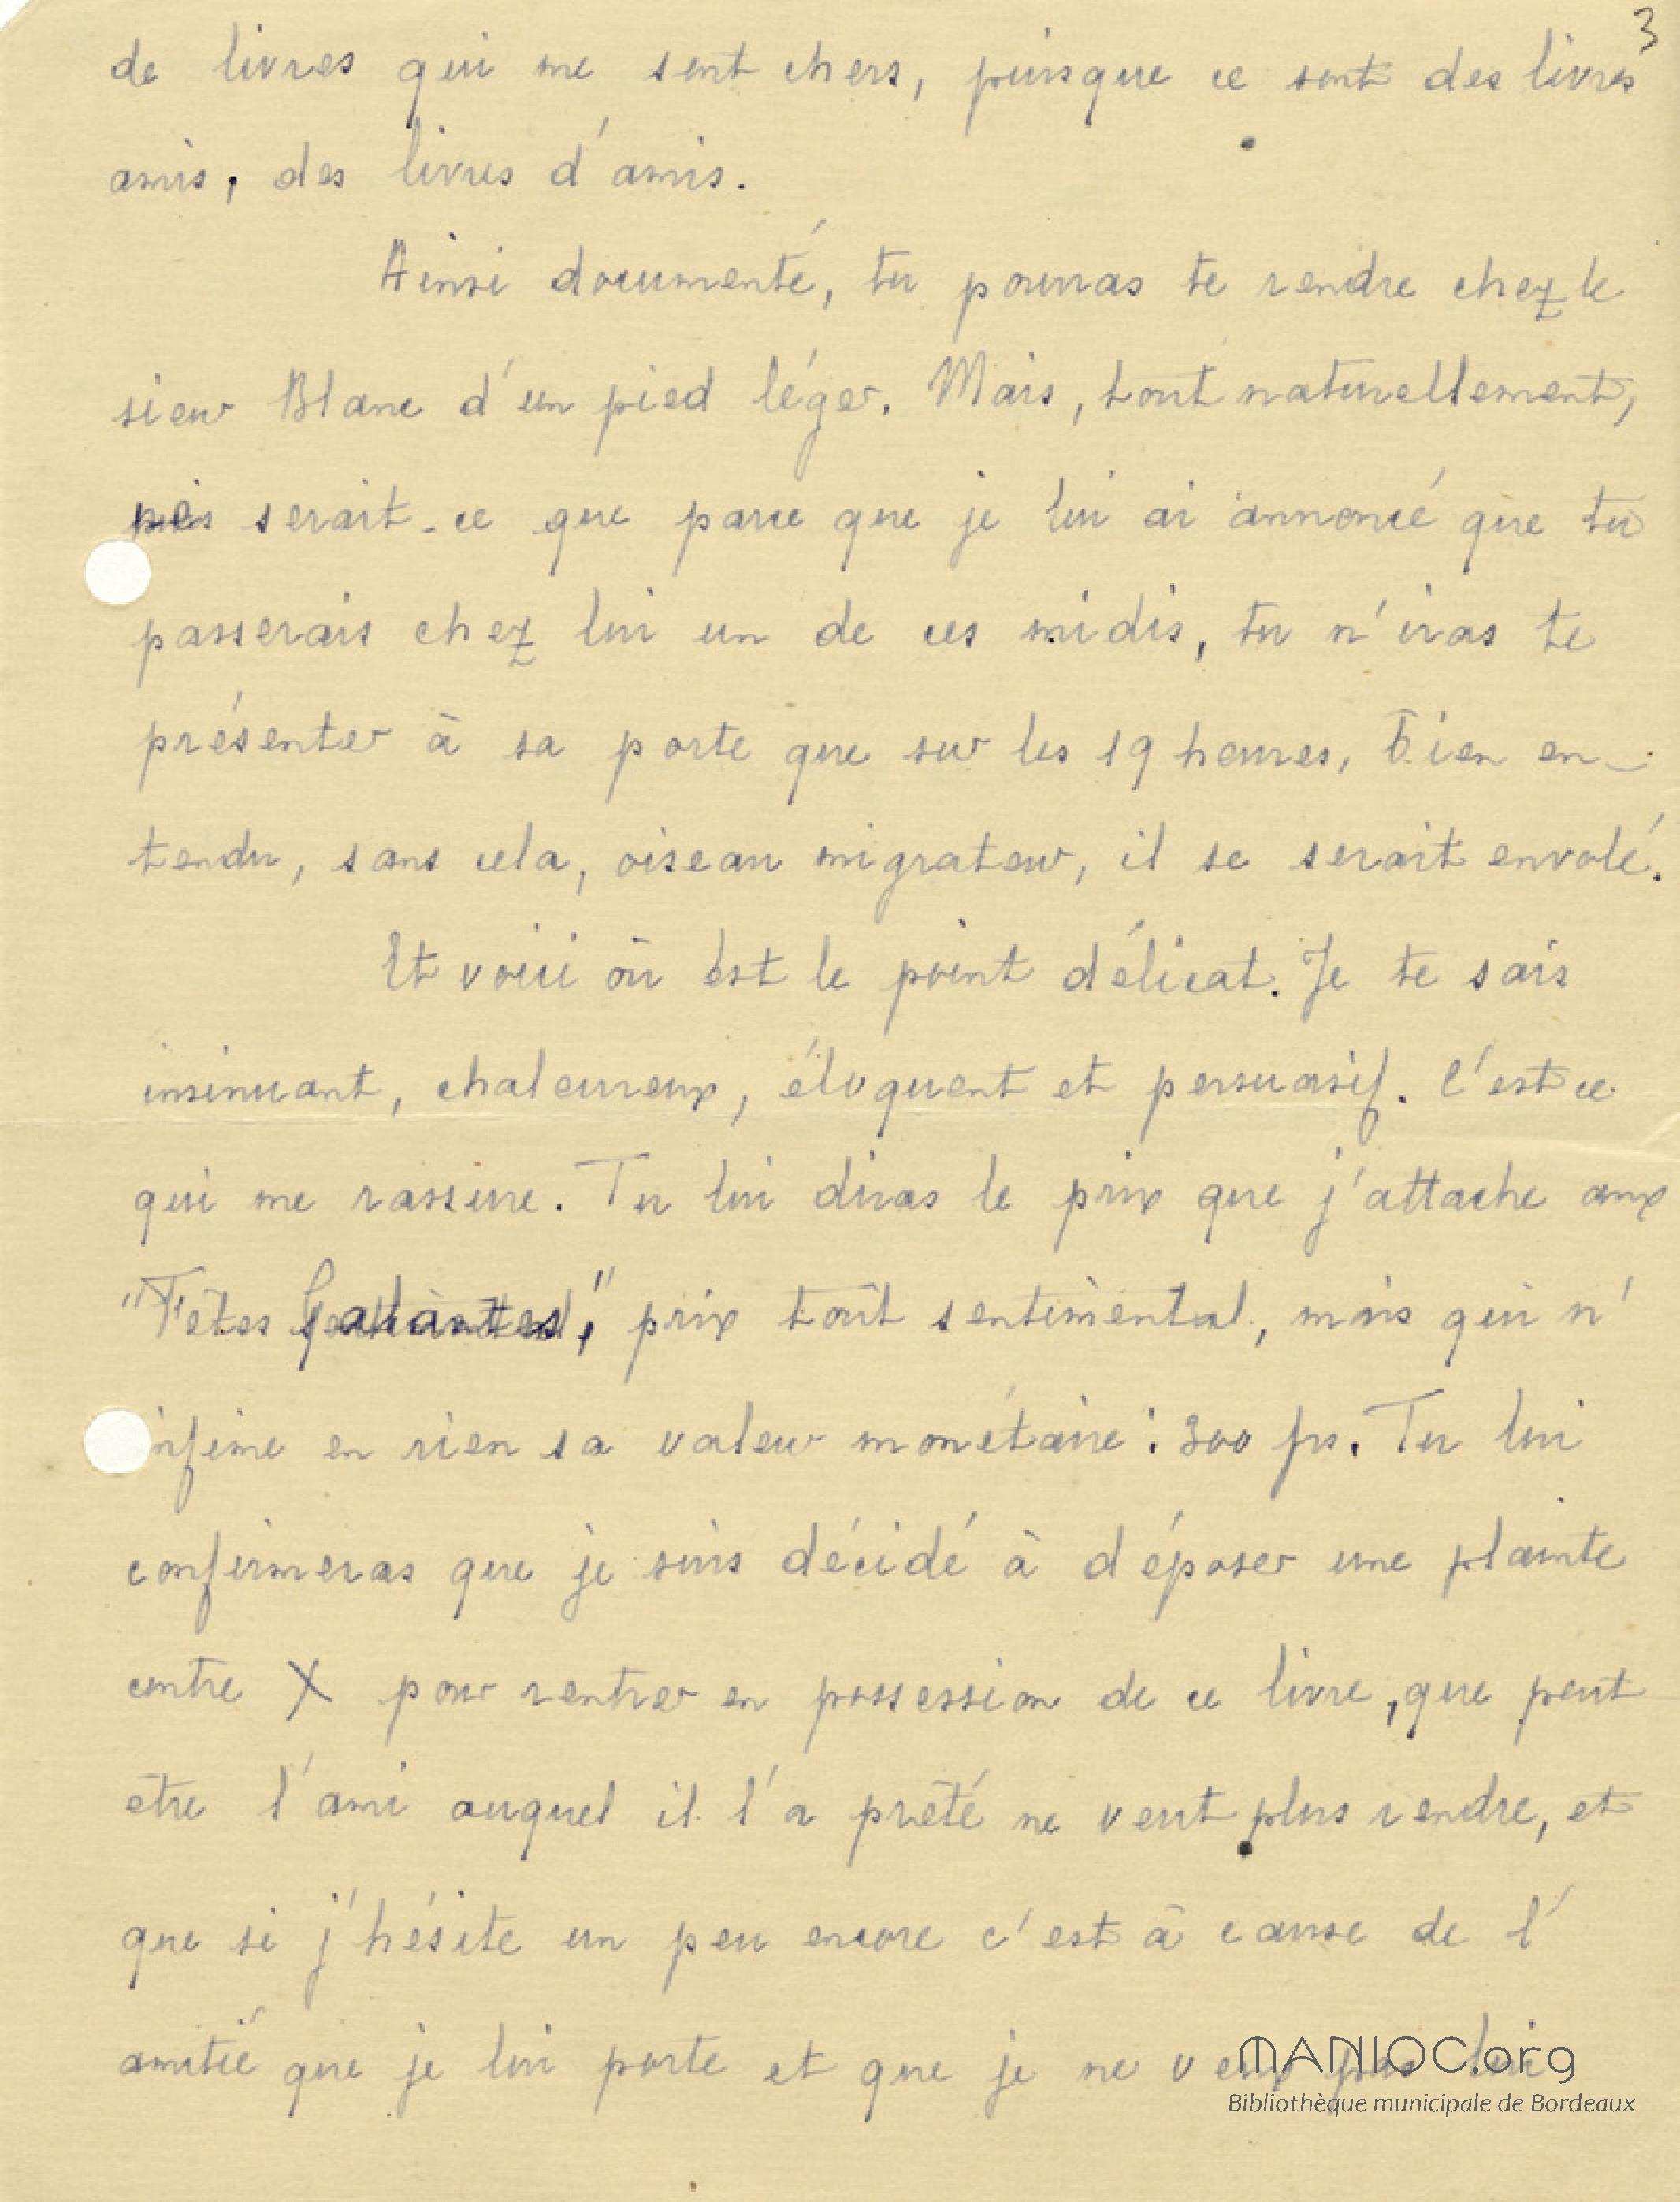 3
de livres qui me sont chers, puisque ce sont des livres
amis, des livres d'amis.
Ainsi documenté, tu pourras te rendre chez le
sieur Blanc d'un pied léger. Mais, tout naturellement,
serait-ce que parce que je lui ai annoncé que tu
passerais chez lui un de ces midis, tu n'iras te
présenter à sa porte que sur les 19 heures, bien en-
tendu, sans cela, oiseau migrateur, il se serait envolé.
Et voici où est le point délicat. Je te sais
insinuant, chaleureux, éloquent et persuasif. C'est ce
qui me rassure. Tu lui diras le prix que j'attache aux
"Fêtes Galantes," prix tout sentimental, mais qui n'
infime en rien sa valeur monétaire : 300 frs. Tu lui
confirmeras que je suis décidé à déposer une plainte
contre X pour rentrer en possession de ce livre, que peut
être l'ami auquel il l'a prêté ne veut plus rendre, et
que si j'hésite un peu encore c'est à cause de l'
amitié que je lui porte et que je ne veux pas lui
MANIOC.org
Bibliothèque municipale de Bordeaux